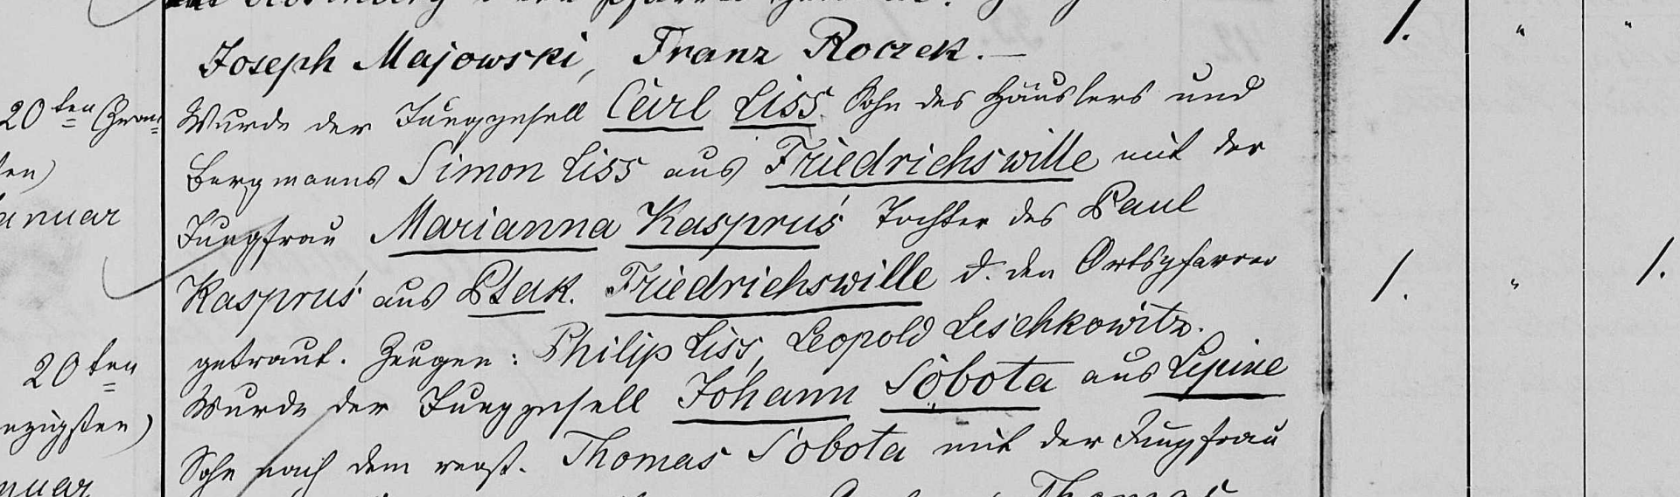 Joseph Majowski, Franz Roczek. —
20ten Wurde der Junggesell Carl Liss Sohn des Häuslers und
Bergmanns Simon Liss aus Friedrichswille mit der
Januar Jungfrau Marianna Kaspruś Tochter des Paul
Kaspruś aus Ptak. Friedrichswille d. den Ortspfarrer
getraut. Zeugen: Philip Liss, Leopold Leschkowitz.
20ten Wurde der Junggesell Johann Sobota aus Lipine
nzigsten) Sohn nach dem verst. Thomas Sobota mit der Jungfrau
nuar Thomas